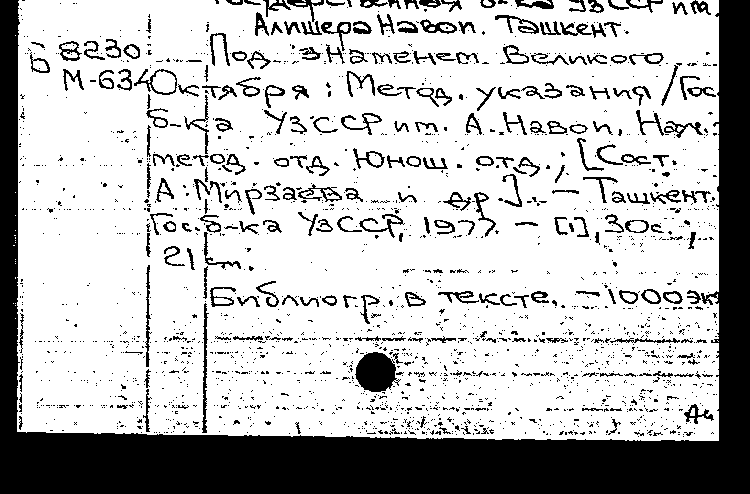 Государственная б-ка УзССР им.
Алишера Навои. Ташкент.
Б 8230 Под знаменем Великого
М-634 Октября : Метод. указания / Гос.
б-ка УзССР им. А. Навои, Науч.-
метод. отд. Юнош. отд.; [Сост.
А. Мирзаева и др.]. – Ташкент:
Гос. б-ка УзССР, 1977. – [1], 30с. ;
21 см.
Библиогр. в тексте. – 1000 эк